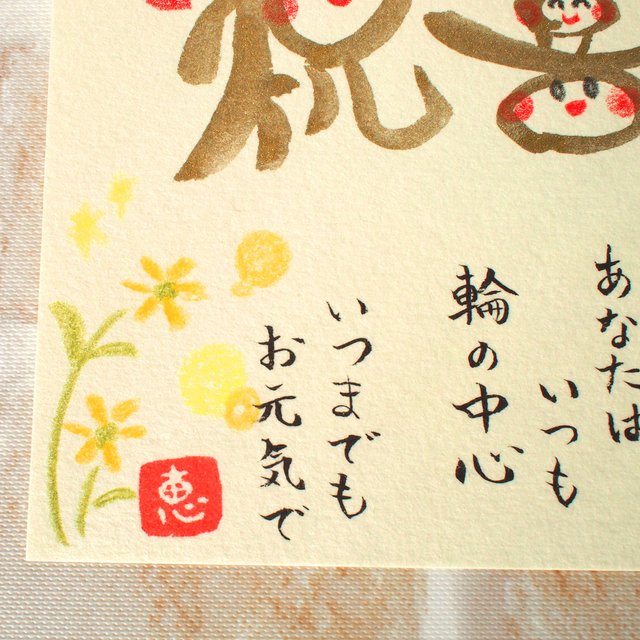 祝喜
あなたは
いつも
輪の中心
いつまでも
お元気で
恵